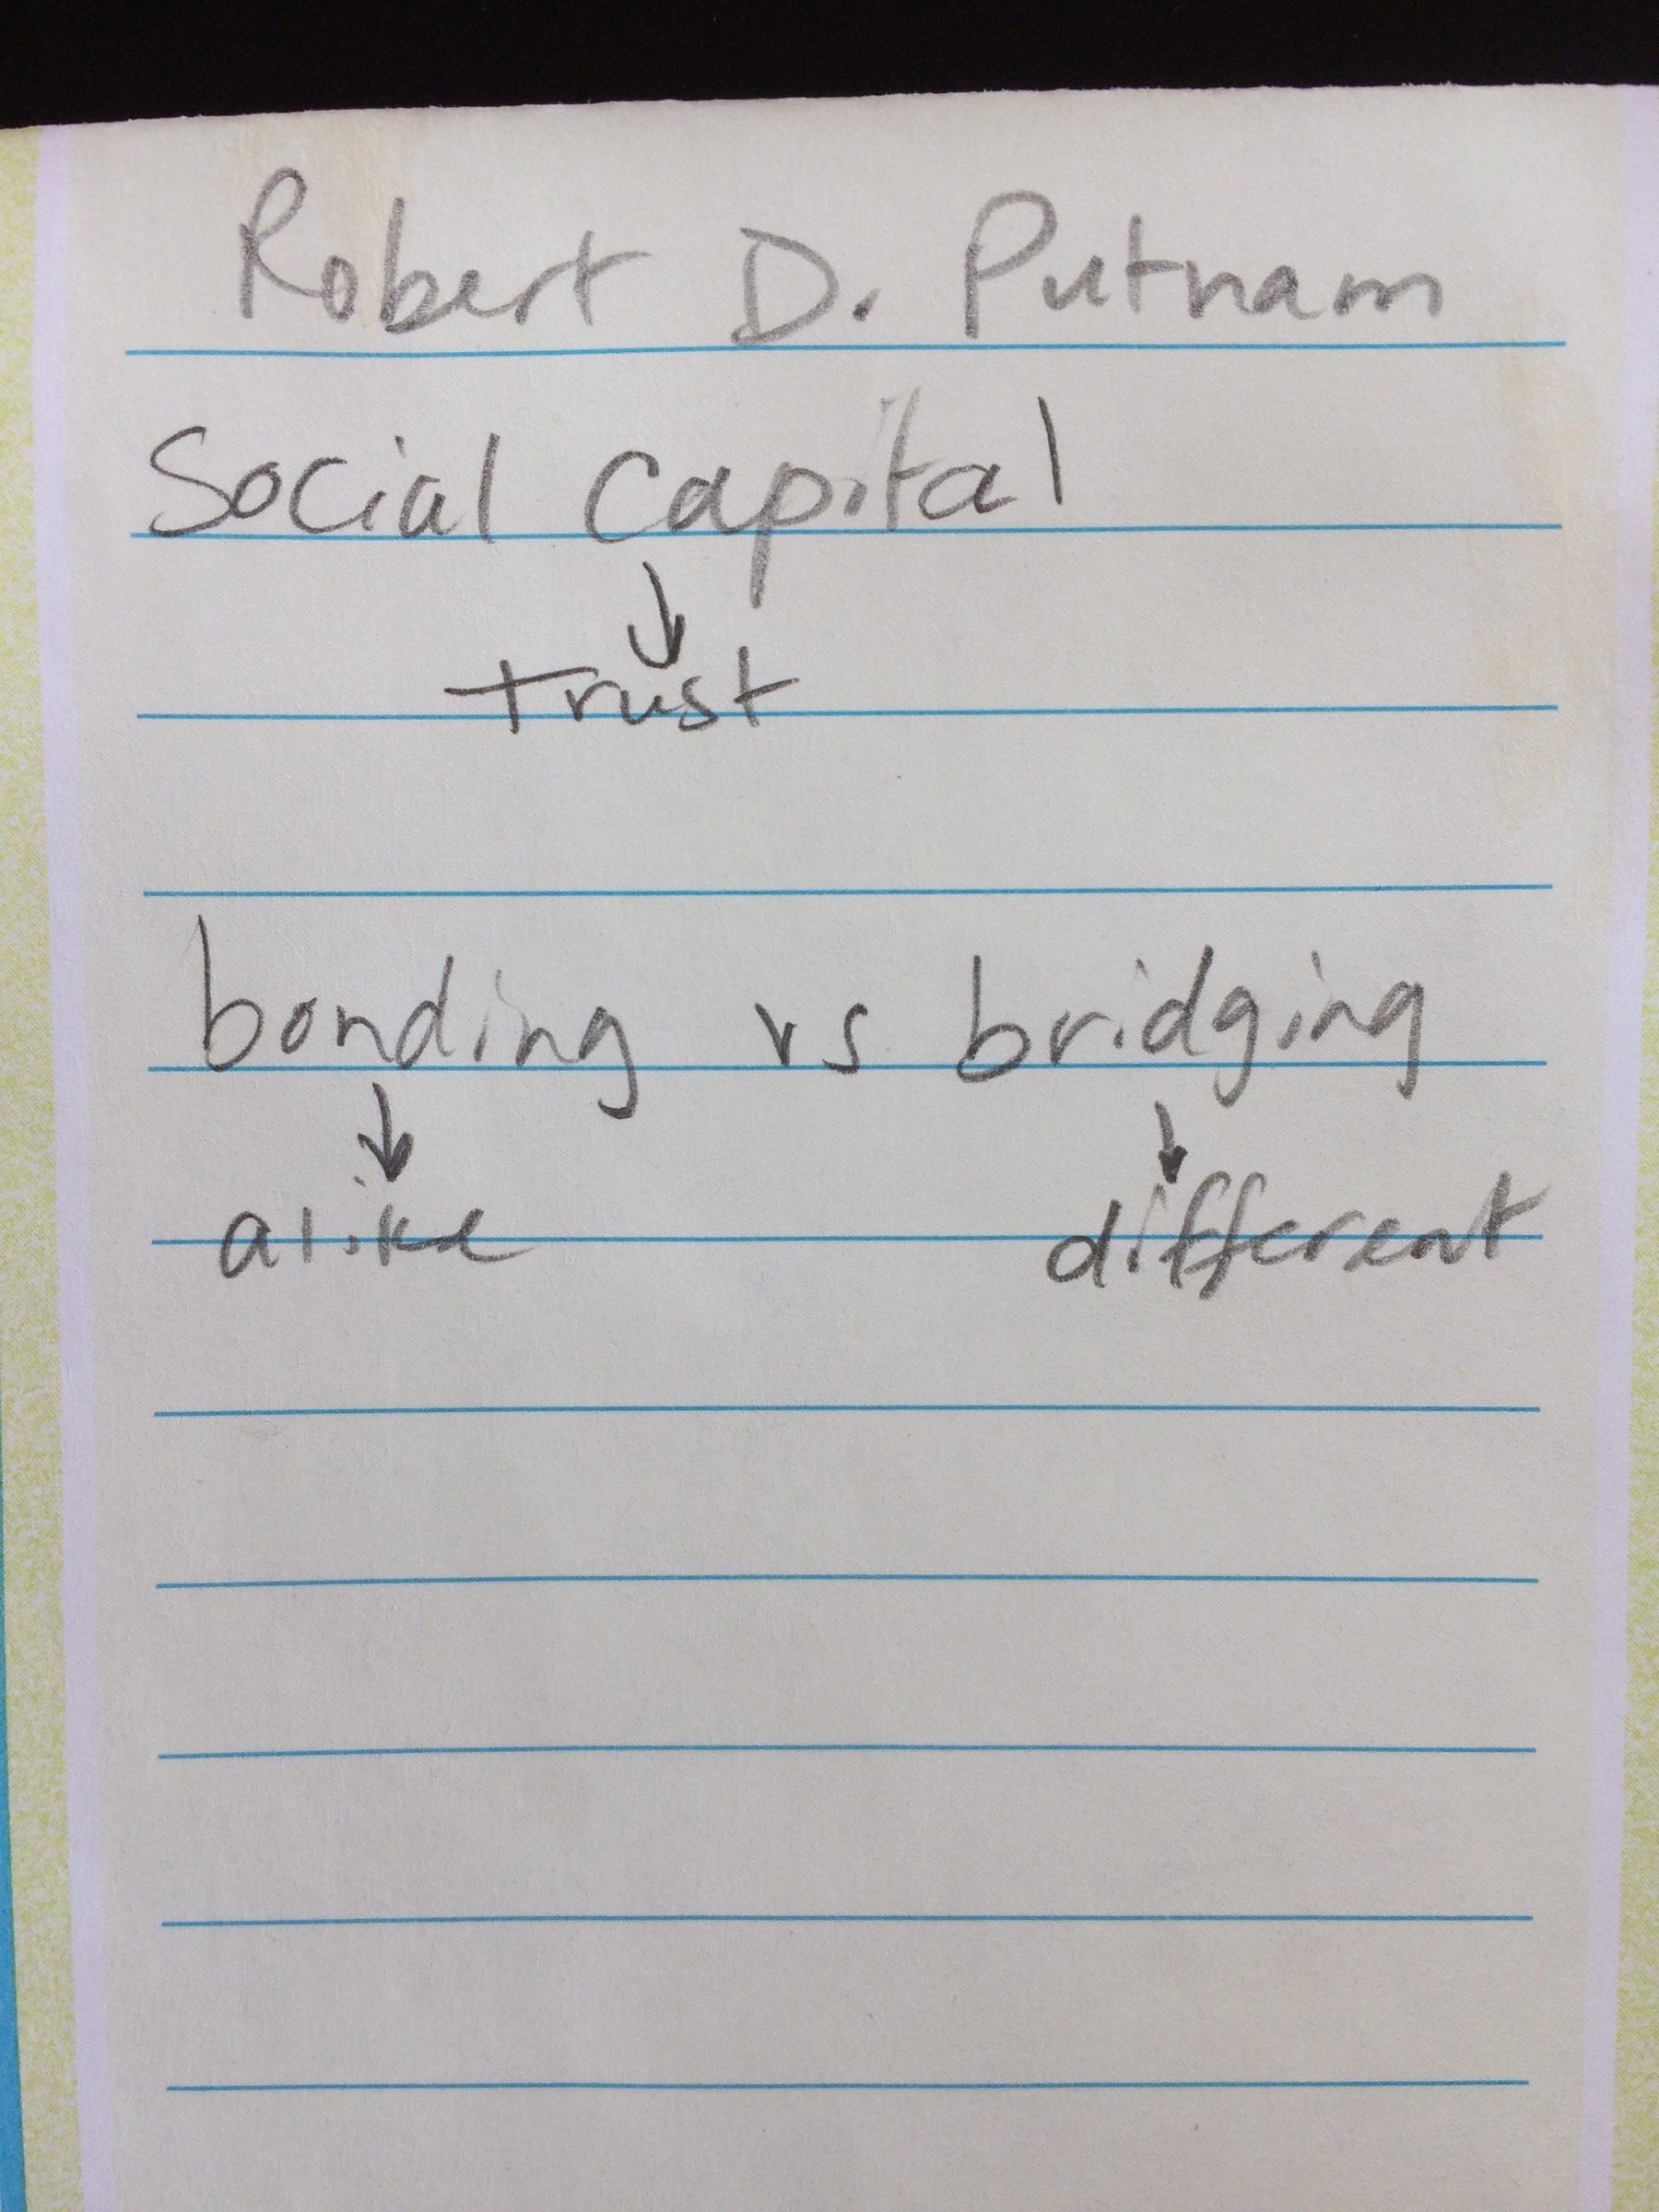 Robert D. Putnam
Social Capital
↓
trust
bonding vs bridging
↓ ↓
alike different